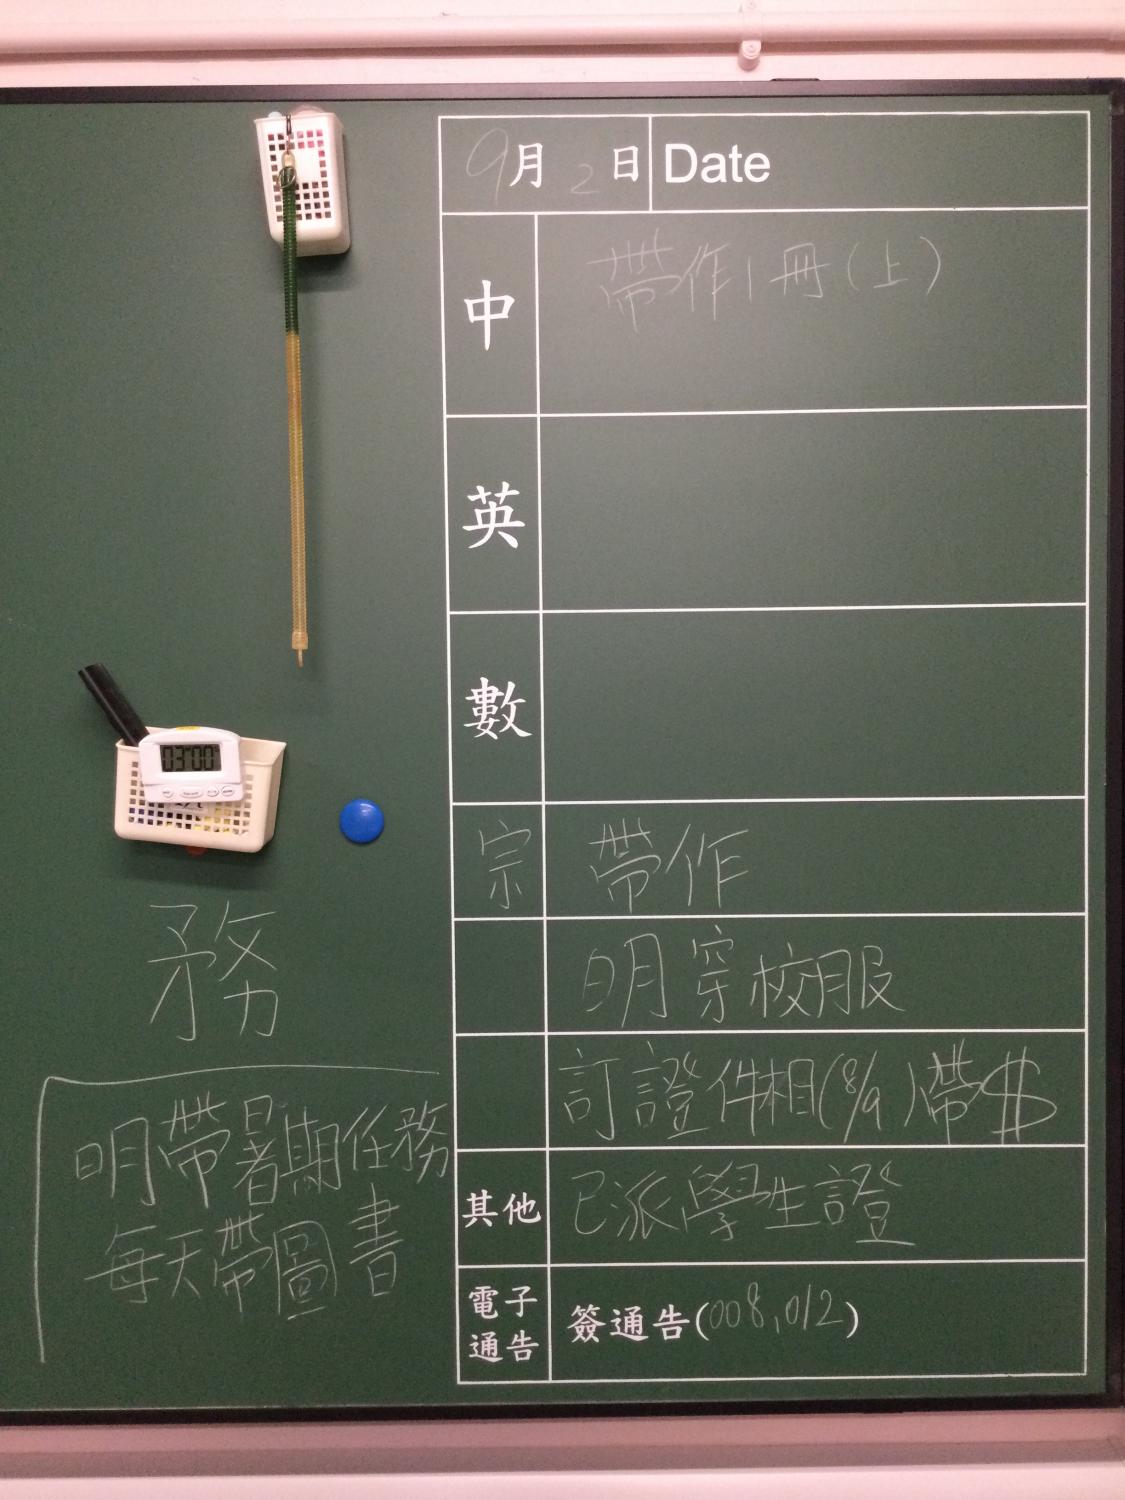 9月2日 Date
中 帶作1冊(上)
英
數
宗 帶作
明穿校服
訂證件相(8/9)帶$
其他 已派學生證
電子通告 簽通告(008,012)
03 00
務
明帶暑期任務
每天帶圖書